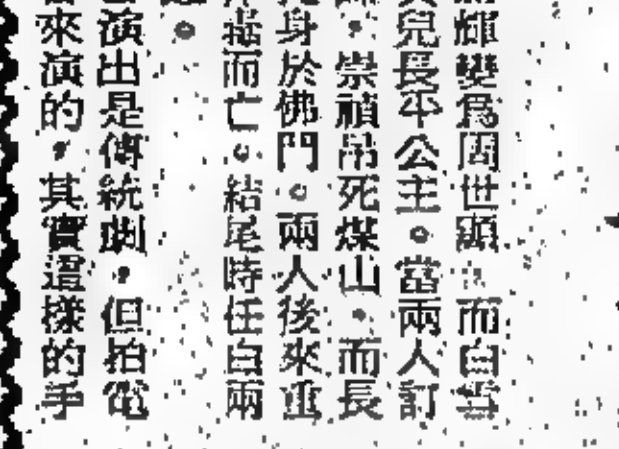 輝變爲周世顯，而白雪
兒長平公主。當兩人訂
，崇禎吊死煤山，而長
身於佛門。兩人後來重
而亡。結尾時任白兩
。
演出是傳統劇，但拍電
來演的，其實這樣的手